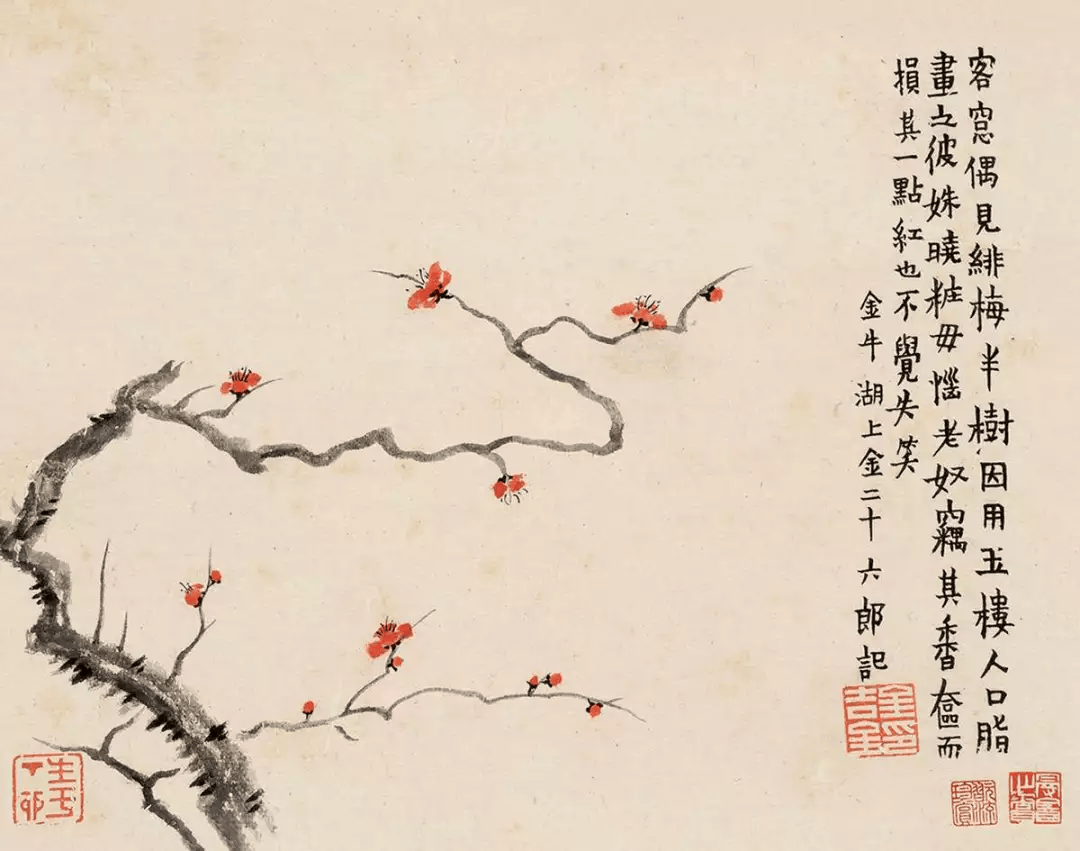 客窓偶見緋梅半樹因用玉樓人口脂
畫之彼姝曉粧毋惱老奴竊其香奩而
損其一點紅也不覺失笑
金牛湖上金二十六郎記
金吉金印
生于丁卯